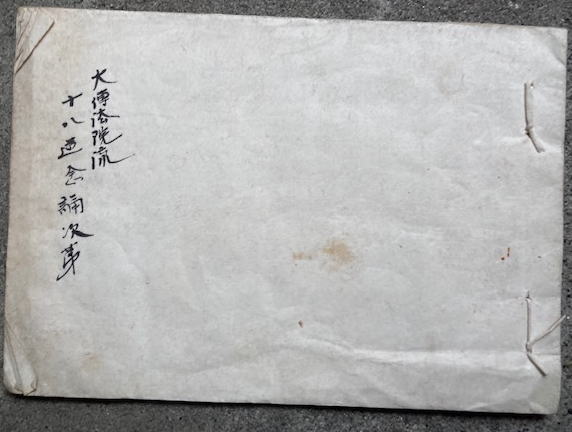 大傳法院流
十八道念誦次第